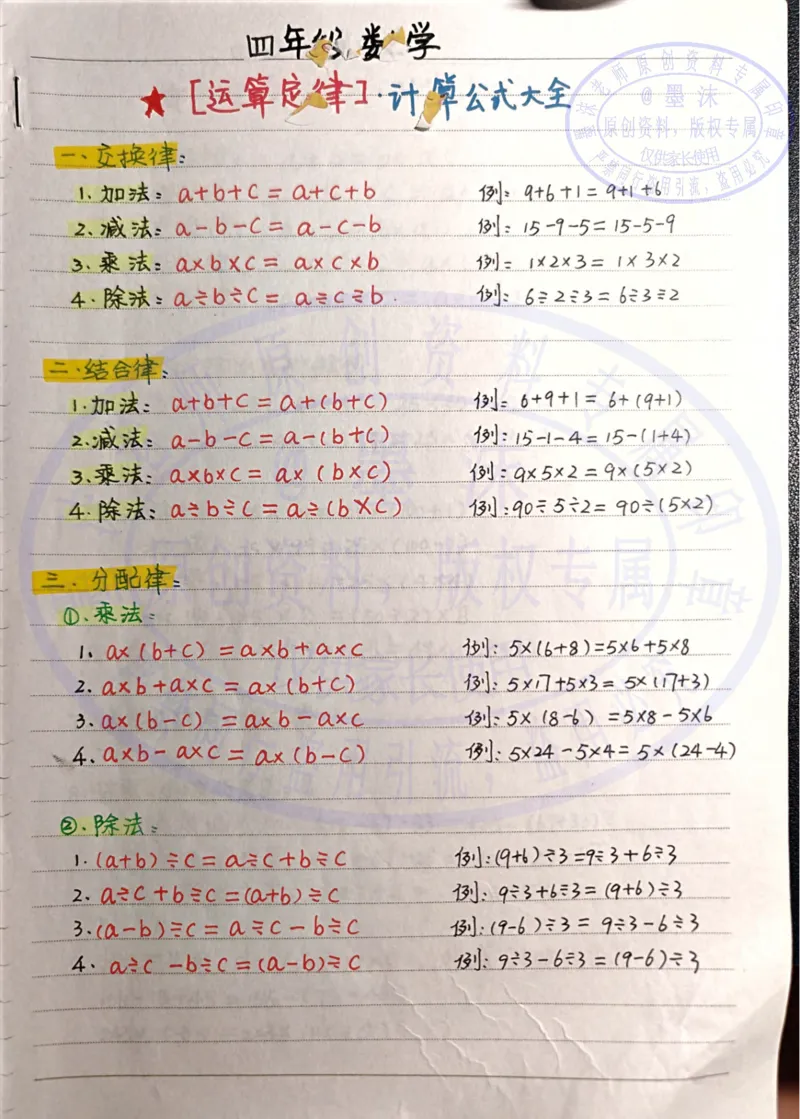 四年级数学
★[运算定律]·计算公式大全
墨沫老师原创资料专属印章
@墨沫
原创资料,版权专属
仅供家长使用
一、交换律:
1.加法:a+b+c=a+c+b 例:9+6+1=9+1+6
2.减法:a-b-c=a-c-b 例:15-9-5=15-5-9
3.乘法:a×b×c=a×c×b 例:1×2×3=1×3×2
4.除法:a÷b÷c=a÷c÷b. 例:6÷2÷3=6÷3÷2
二、结合律:
1.加法:a+b+c=a+(b+c) 例:6+9+1=6+(9+1)
2.减法:a-b-c=a-(b+c) 例:15-1-4=15-(1+4)
3.乘法:a×b×c=a×(b×c) 例:9×5×2=9×(5×2)
4.除法:a÷b÷c=a÷(b×c) 例:90÷5÷2=90÷(5×2)
三.分配律:
①.乘法:
1.a×(b+c)=a×b+a×c 例:5×(6+8)=5×6+5×8
2.a×b+a×c=a×(b+c) 例:5×17+5×3=5×(17+3)
3.a×(b-c)=a×b-a×c 例:5×(8-6)=5×8-5×6
4.a×b-a×c=a×(b-c) 例:5×24-5×4=5×(24-4)
②.除法:
1.(a+b)÷c=a÷c+b÷c 例:(9+6)÷3=9÷3+6÷3
2.a÷c+b÷c=(a+b)÷c 例:9÷3+6÷3=(9+6)÷3
3.(a-b)÷c=a÷c-b÷c 例:(9-6)÷3=9÷3-6÷3
4.a÷c-b÷c=(a-b)÷c 例:9÷3-6÷3=(9-6)÷3